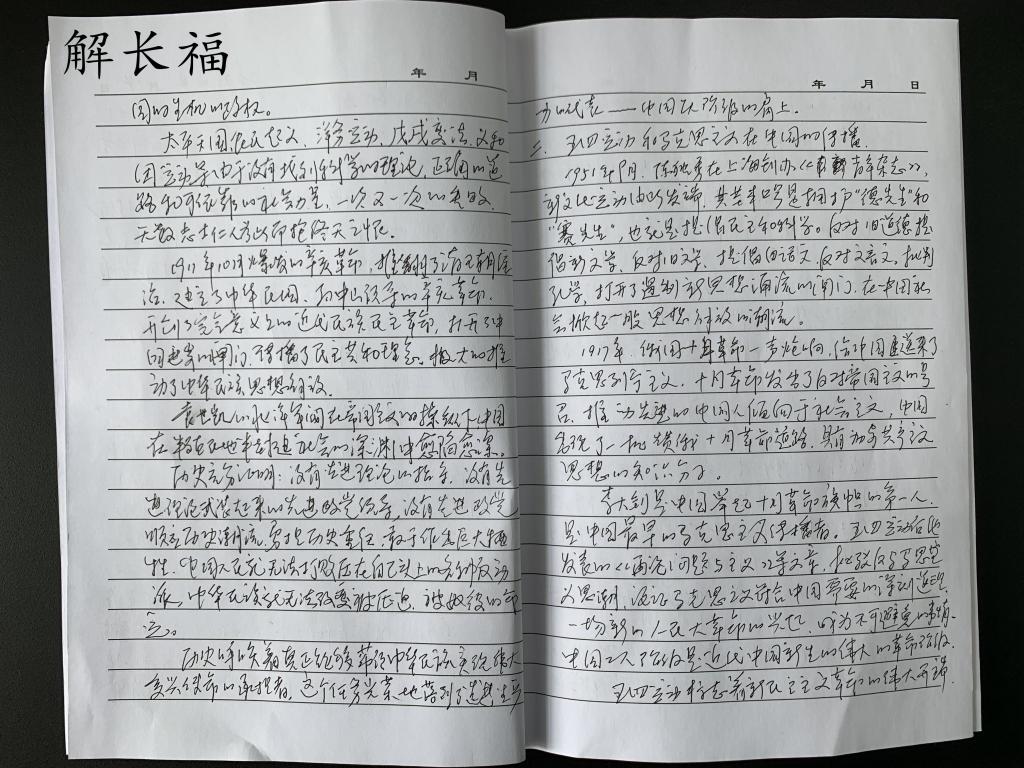 解长福
年 月
国的生机的学权。
太平天国农民起义、洋务运动、戊戌变法、义和
团运动等由于没有找到科学的理论,正确的道
路和可依靠的社会力量,一次又一次的失败,
无数志士仁人为此而抱终天之恨。
1911年10月爆发的辛亥革命,推翻了清王朝统
治,建立了中华民国,孙中山领导的辛亥革命,
开创了完全意义上的近代民族民主革命,打开了中
国进步的闸门,传播了民主共和理念,极大的推
动了中华民族思想解放。
袁世凯的北洋军阀在帝国主义的操纵下,中国
在半殖民地半封建社会的深渊中愈陷愈深。
历史充分证明:没有先进理论的指导,没有先
进理论武装起来的先进政党领导,没有先进政党
顺应历史潮流,勇担历史重任,敢于作出巨大牺
牲,中国人民就无法打败压在自己头上的各种反动
派,中华民族就无法改变被压迫、被奴役的命
运。
历史呼唤着真正能够带领中华民族实现伟大
复兴使命的承担者,这个任务光荣地落到了先进生产
年 月 日
力的代表——中国工人阶级的肩上。
二、五四运动和马克思主义在中国的传播
1951年9月,陈独秀在上海创办《青年杂志》,
新文化运动由此发端,其基本口号是拥护“德先生”和
“赛先生”,也就是提倡民主和科学。反对旧道德提
倡新文学、反对旧文学、提倡白话文、反对文言文,批判
孔学,打开了遏制新思想涌流的闸门,在中国社
会掀起一股思想解放的潮流。
1917年,俄国十月革命一声炮响,给中国送来了
马克思列宁主义,十月革命发出了反对帝国主义的号
召,推动先进的中国人倾向于社会主义,中国
出现了一批赞成俄十月革命道路,具有初步共产主义
思想的知识分子。
李大钊是中国举起十月革命旗帜的第一人,
是中国最早的马克思主义传播者。五四运动后他
发表的《再论问题与主义》等文章,批驳反马克思主
义思潮,论证马克思主义符合中国需要的深刻道理,
一场新的人民大革命的兴起,成为不可避免的事情。
中国工人阶级是近代中国新生的伟大的革命阶级。
五四运动标志着新民主主义革命的伟大开端